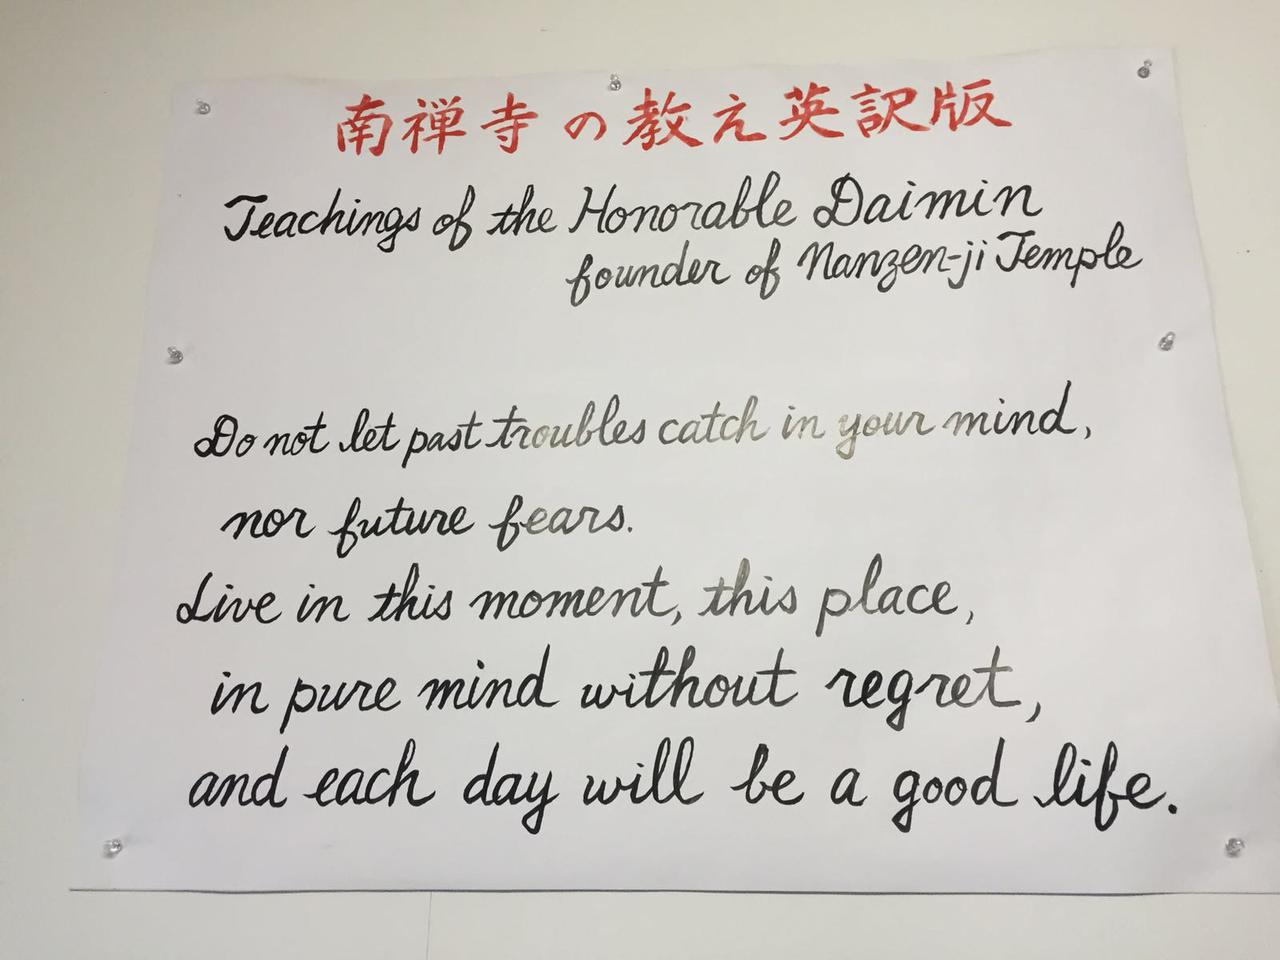 南禅寺の教え英訳版
Teachings of the Honorable Daimin
founder of Nanzen-ji Temple
Do not let past troubles catch in your mind,
nor future fears.
Live in this moment, this place,
in pure mind without regret,
and each day will be a good life.